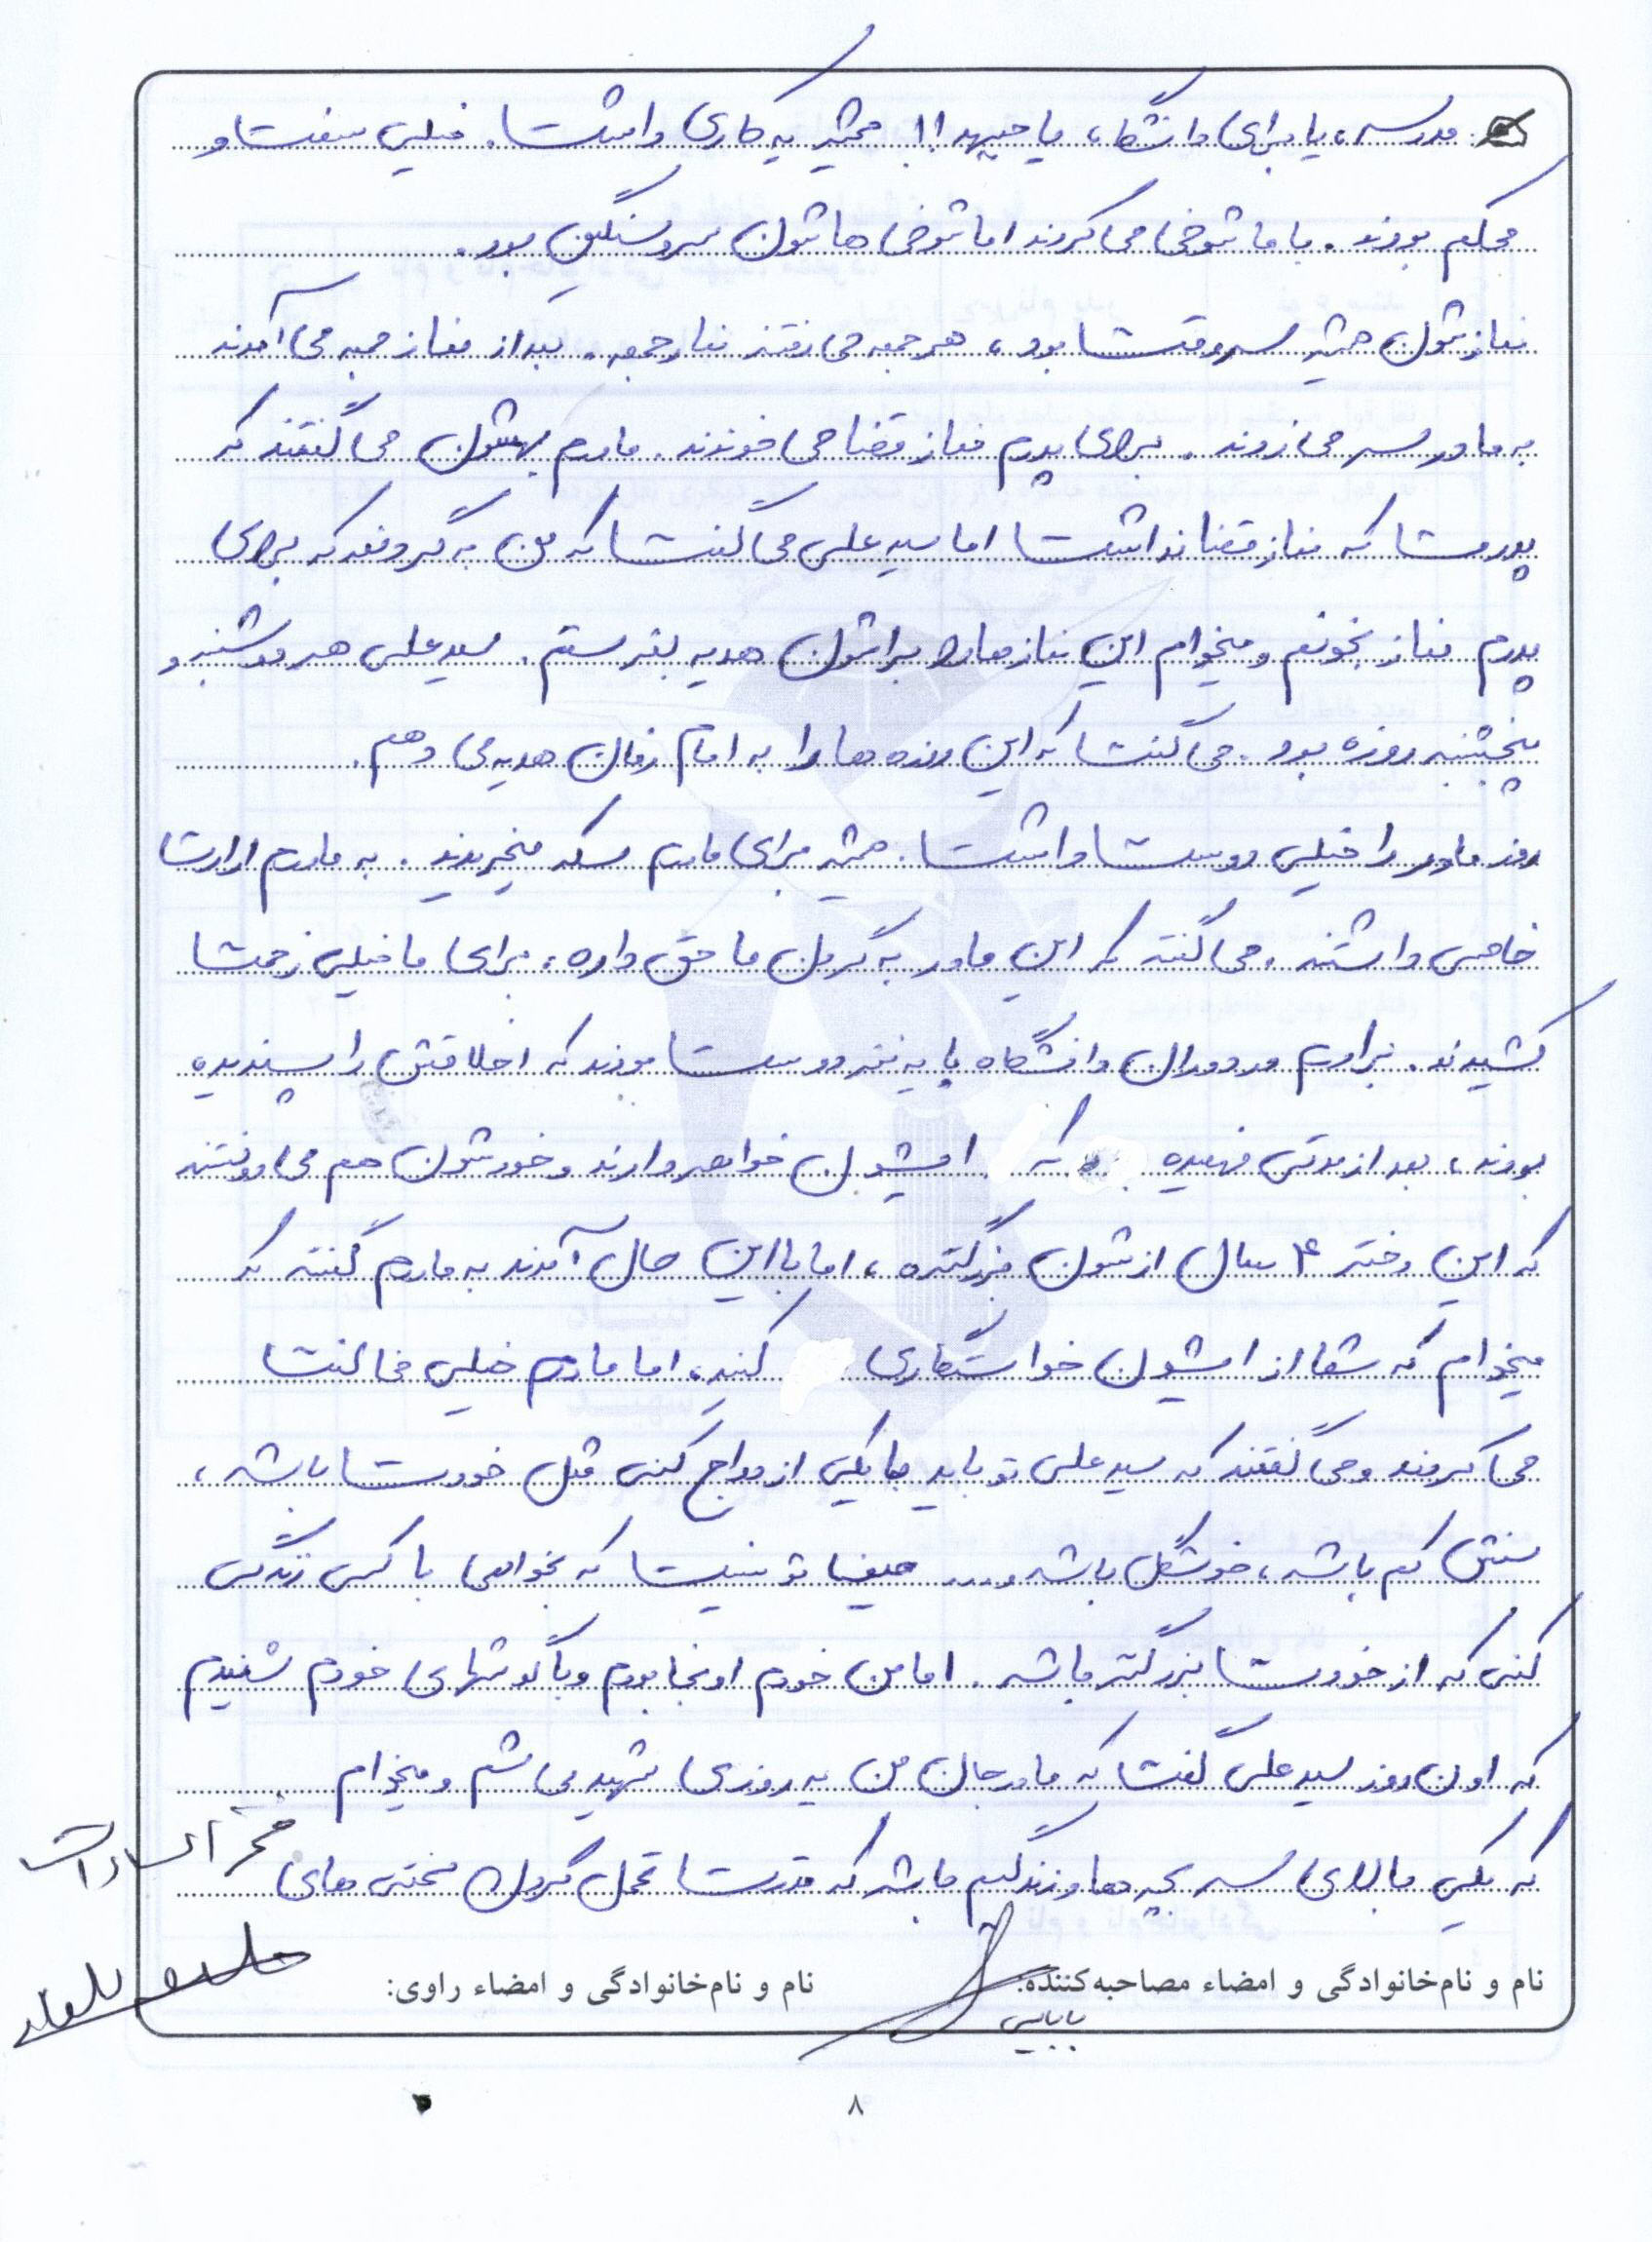 مدرسه، یا برای دانشگاه، یا جبهه!! همیشه یه کاری داشت. خیلی سفت و
محکم بودند. با ما شوخی می کردند اما شوخی هاشون سروسنگین بود.
نمازشون همیشه سروقت بود، هر جمعه می رفتند نماز جمعه. بعد از نماز جمعه می آمدند
به مادر سر می زدند. برای پدرم نماز قضا می خوندند. مادرم بهشون می گفتند که
پدرت که نماز قضا نداشت اما سید علی می گفت که من به گردنمه که برای
پدرم نماز بخونم و میخوام این نمازها رو براشون هدیه بفرستم. سید علی هر دوشنبه و
پنجشنبه روزه بود. می گفت که این روزه ها را به امام زمان هدیه می دهم.
روز مادر را خیلی دوست داشت. همیشه برای مادرم سکه میخریدند. به مادرم ارادت
خاصی داشتند. می گفتند که این مادر به گردن ما حق داره، برای ما خیلی زحمت
کشیدند. برادرم در دوران دانشگاه با یه نفر دوست بودند که اخلاقش را پسندیده
بودند، بعد از مدتی فهمیده که ایشون خواهر دارند و خودشون هم می دونستند
که این دختر ۴ سال ازشون بزرگتره، اما با این حال آمدند به مادرم گفتند که
میخوام که شما از ایشون خواستگاری کنید، اما مادرم خیلی مخالفت
می کردند و می گفتند که سید علی تو باید با یکی ازدواج کنی مثل خودت باشه،
سنش کم باشه، خوشگل باشه و.... حیف تو نیست که بخواهی با کسی زندگی
کنی که از خودت بزرگتر باشه. اما من خودم اونجا بودم و با گوشهای خودم شنیدم
که اون روز سید علی گفت که مادر جان من یه روزی شهید می شم و میخوام
که یکی بالای سر بچه ها و زندگیم باشه که قدرت تحمل کردن سختی های
فخر السادات
نام و نام‌خانوادگی و امضاء مصاحبه‌کننده:
بابایی
نام و نام‌خانوادگی و امضاء راوی:
۸